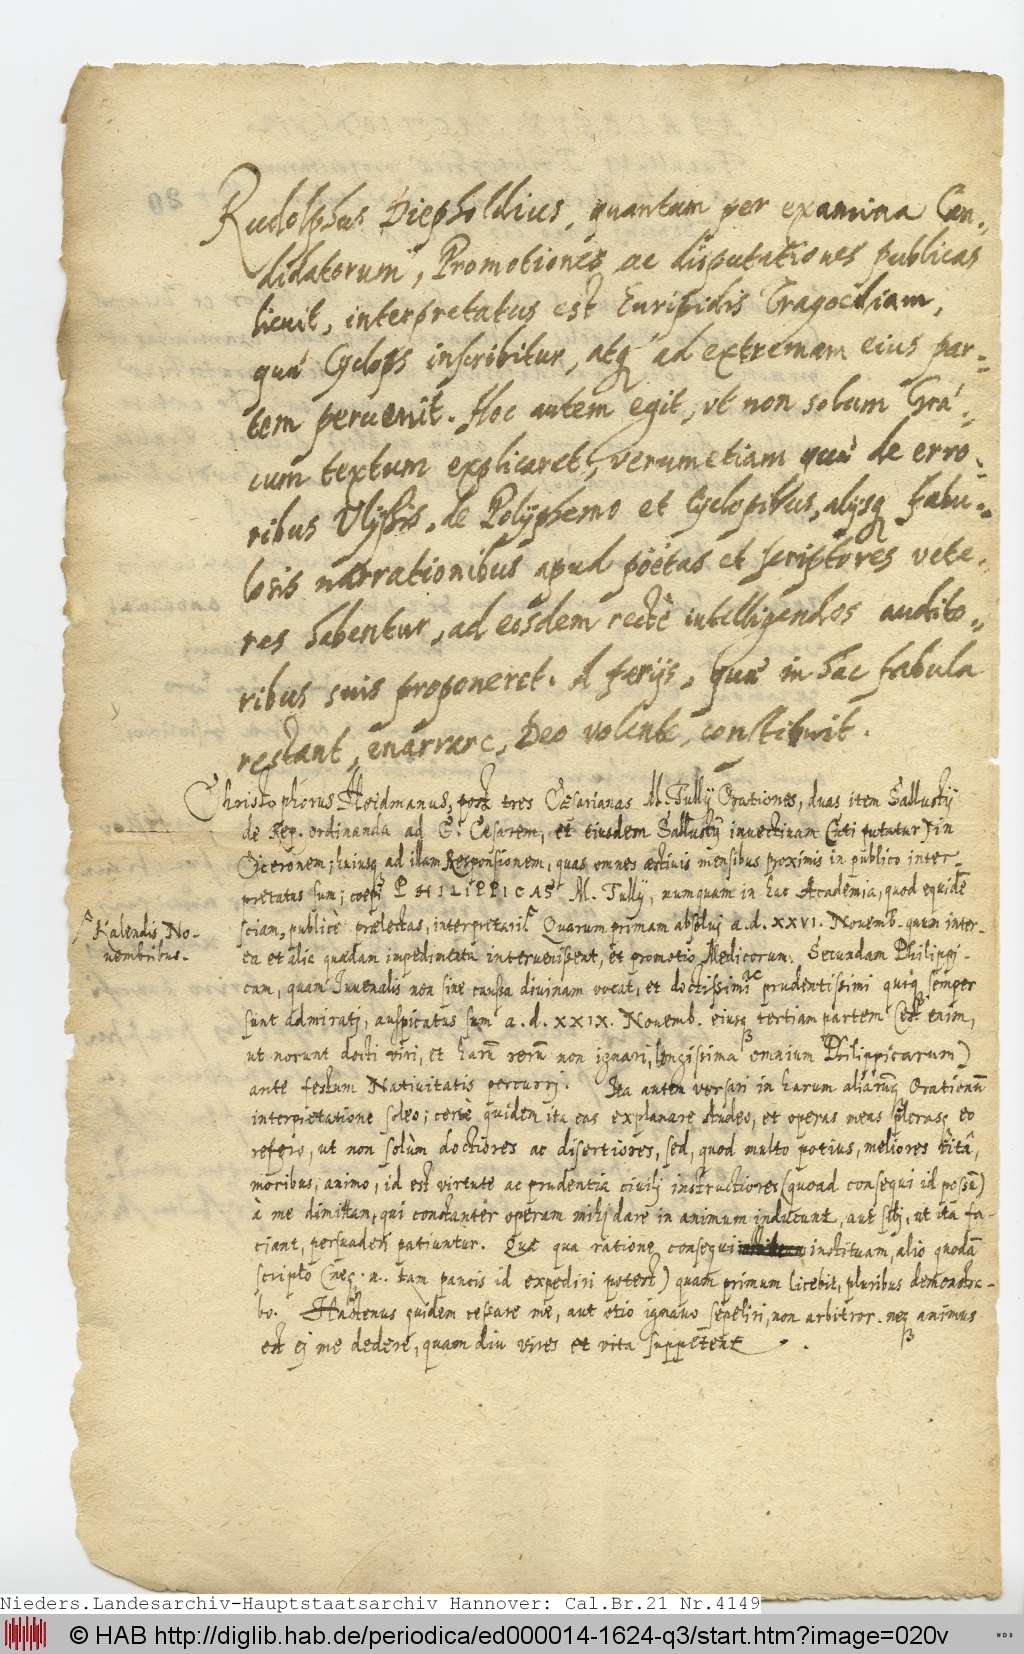 Rudolphus Diepholdius, quantum per examina Can-
didatorum, Promotiones ac disputationes publicas
licuit, interpretatus est Euripidis Tragoediam,
quæ Cyclops inscribitur, atq ad extremam eius par-
tem peruenit. Hoc autem egit, vt non solum Græ-
cum textum explicaret, verumetiam quæ de erro-
ribus Ulyssis, de Polyphemo et Cyclopibus, alijsq fabu-
losis narrationibus apud poëtas et scriptores vete-
res habentur, ad eosdem rectè intelligendos audito-
ribus suis proponeret. A ferijs, quæ in hac fabula
restant, enarrare, Deo volente, constituit.
Christophorus Heidmanus, post tres Cæsarianas M. Tullij Orationes, duas item Sallustij
de Rep. ordinanda ad C. Cæsarem, et eiusdem Sallustij inuectiuam (uti putatur) in
Ciceronem; huiusq ad illam Responsionem, quas omnes æstiuis mensibus proximis in publico inter-
pretatus sum; coepi PHILIPPICAS M. Tullij, numquam in hac Academia, quod equidē
sciam, publicè prælectas, interpretari. Quarum primam absolui a. d. XXVI. Novemb. quum inter-
Kalendis No-
uembribus.
ea et alia quædam impedimenta interuenissent, et promotio Medicorum. Secundam Philippi-
cam, quam Iuuenalis non sine caussa diuinam vocat, et doctissimi ac prudentissimi quiq semper
sunt admirati, auspicatus sum a. d. XXIX. Novemb. eiusq tertiam partem (est enim,
ut norunt docti viri, et harū rerū non ignari, longissima omnium Philippicarum)
ante festum Natiuitatis percurri. Ita autem versari in harum aliarumq Orationū
interpretatione soleo; certè quidem ita eas explanare studeo, et operas meas plerasq eo
refero, ut non solùm doctiores ac disertiores, sed, quod multo potius, meliores vitâ,
moribus, animo, id est virtute ac prudentia ciuili instructiores (quoad consequi id possū)
à me dimittam, qui constanter operam mihi dare in animum inducunt, aut sibi, ut ita fa-
ciant, persuaderi patiuntur. Quæ qua ratione consequi instituam, alio quodā
scripto (neq. n. tam paucis id expediri potest) quam primum licebit, pluribus demonstra-
bo. Hactenus quidem cessare me, aut otio ignauo sepeliri, non arbitror. neq animus
est ei me dedere, quam diu vires et vita suppetent.
Nieders.Landesarchiv-Hauptstaatsarchiv Hannover: Cal.Br.21 Nr.4149
© HAB http://diglib.hab.de/periodica/ed000014-1624-q3/start.htm?image=020v